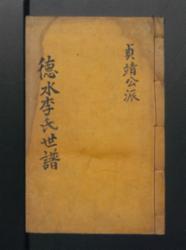 貞靖公派
德水李氏世譜